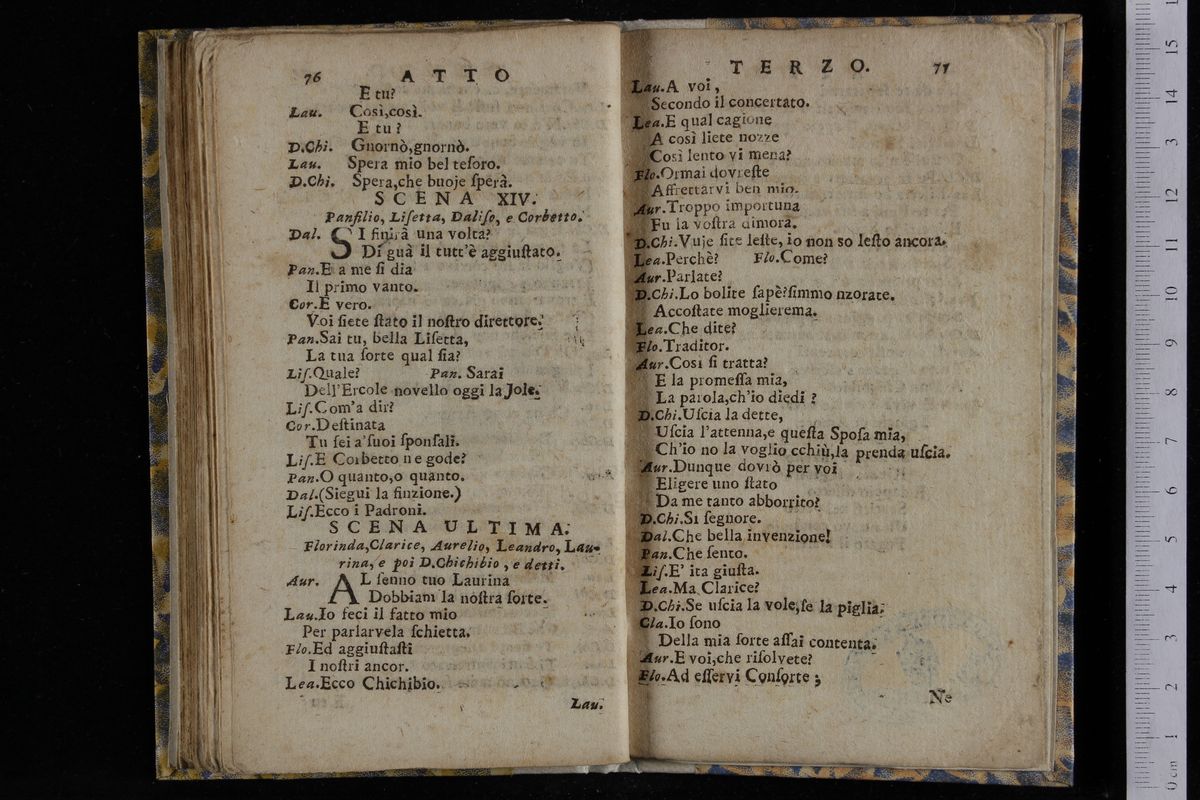 76 ATTO
E tu?
Lau. Così,così.
E tu?
D.Chi. Gnornò,gnornò.
Lau. Spera mio bel teſoro.
D.Chi. Spera,che buoje ſperà.
SCENA XIV.
Panfilio, Liſetta, Daliſo, e Corbetto.
Dal. SI finirà una volta?
Di guà il tutt'è aggiuſtato.
Pan.E a me ſi dia
Il primo vanto.
Cor.E vero.
Voi ſiete ſtato il noſtro direttore.
Pan.Sai tu, bella Liſetta,
La tua ſorte qual ſia?
Liſ.Quale? Pan. Sarai
Dell'Ercole novello oggi la Jole.
Liſ.Com'a dir?
Cor.Deſtinata
Tu ſei a'ſuoi ſponſali.
Liſ.E Corbetto ne gode?
Pan.O quanto,o quanto.
Dal.(Siegui la finzione.)
Liſ.Ecco i Padroni.
SCENA ULTIMA.
Florinda,Clarice, Aurelio, Leandro, Lau-
rina, e poi D.Chichibio, e detti.
Aur. AL ſenno tuo Laurina
Dobbiam la noſtra ſorte.
Lau.Io feci il fatto mio
Per parlarvela ſchietta.
Flo.Ed aggiuſtaſti
I noſtri ancor.
Lea.Ecco Chichibio.
Lau.
TERZO. 77
Lau.A voi,
Secondo il concertato.
Lea.E qual cagione
A così liete nozze
Così lento vi mena?
Flo.Ormai dovreſte
Affrettarvi ben mio.
Aur.Troppo importuna
Fu la voſtra dimora.
D.Chi.Vuje ſite leſte, io non so leſto ancora.
Lea.Perchè? Flo.Come?
Aur.Parlate?
D.Chi.Lo bolite ſapè?ſimmo nzorate.
Accoſtate moglierema.
Lea.Che dite?
Flo.Traditor.
Aur.Così ſi tratta?
E la promeſſa mia,
La parola,ch'io diedi ?
D.Chi.Uſcia la dette,
Uſcia l'attenna,e queſta Spoſa mia,
Ch'io no la voglio cchiù,la prenda uſcia.
Aur.Dunque dovrò per voi
Eligere uno ſtato
Da me tanto abborrito?
D.Chi.Sì ſegnore.
Dal.Che bella invenzione!
Pan.Che ſento.
Liſ.E' ita giuſta.
Lea.Ma Clarice?
D.Chi.Se uſcia la vole,ſe la piglia.
Cla.Io ſono
Della mia ſorte aſſai contenta.
Aur.E voi,che riſolvete?
Flo.Ad eſſervi Conſorte ;
Ne